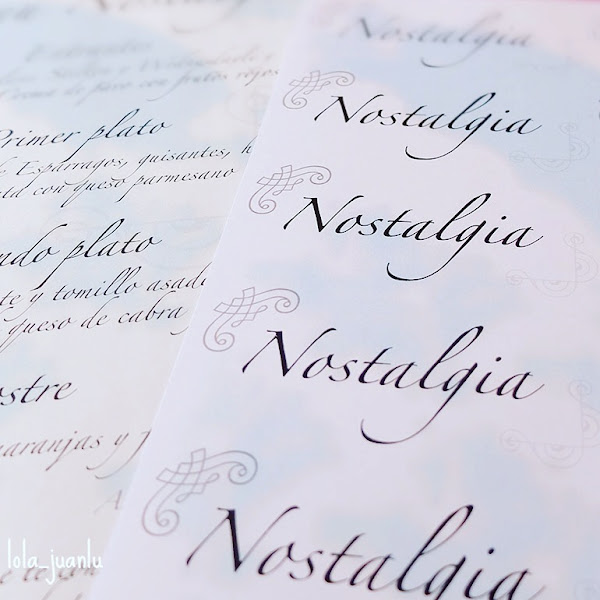 Entrantes
con frutos rojos
Primer plato
Espárragos, guisantes, h
con queso parmesano
ndo plato
te y tomillo asado
queso de cabra
ostre
naranjas y j
A
Nostalgia
Nostalgia
Nostalgia
Nostalgia
Nostalgia
lola_juanlu